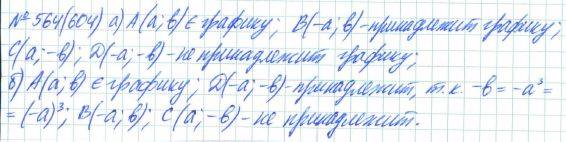 № 564(604) а) А(а; в) ∈ графику; В(-а; в)-принадлежит графику;
С(а; -в); Д(-а; -в)-не принадлежит графику;
б) А(а; в) ∈ графику; Д(-а; -в)-принадлежит, т.к. -в = -а³ =
= (-а)³; В(-а; в); С(а; -в)-не принадлежит.